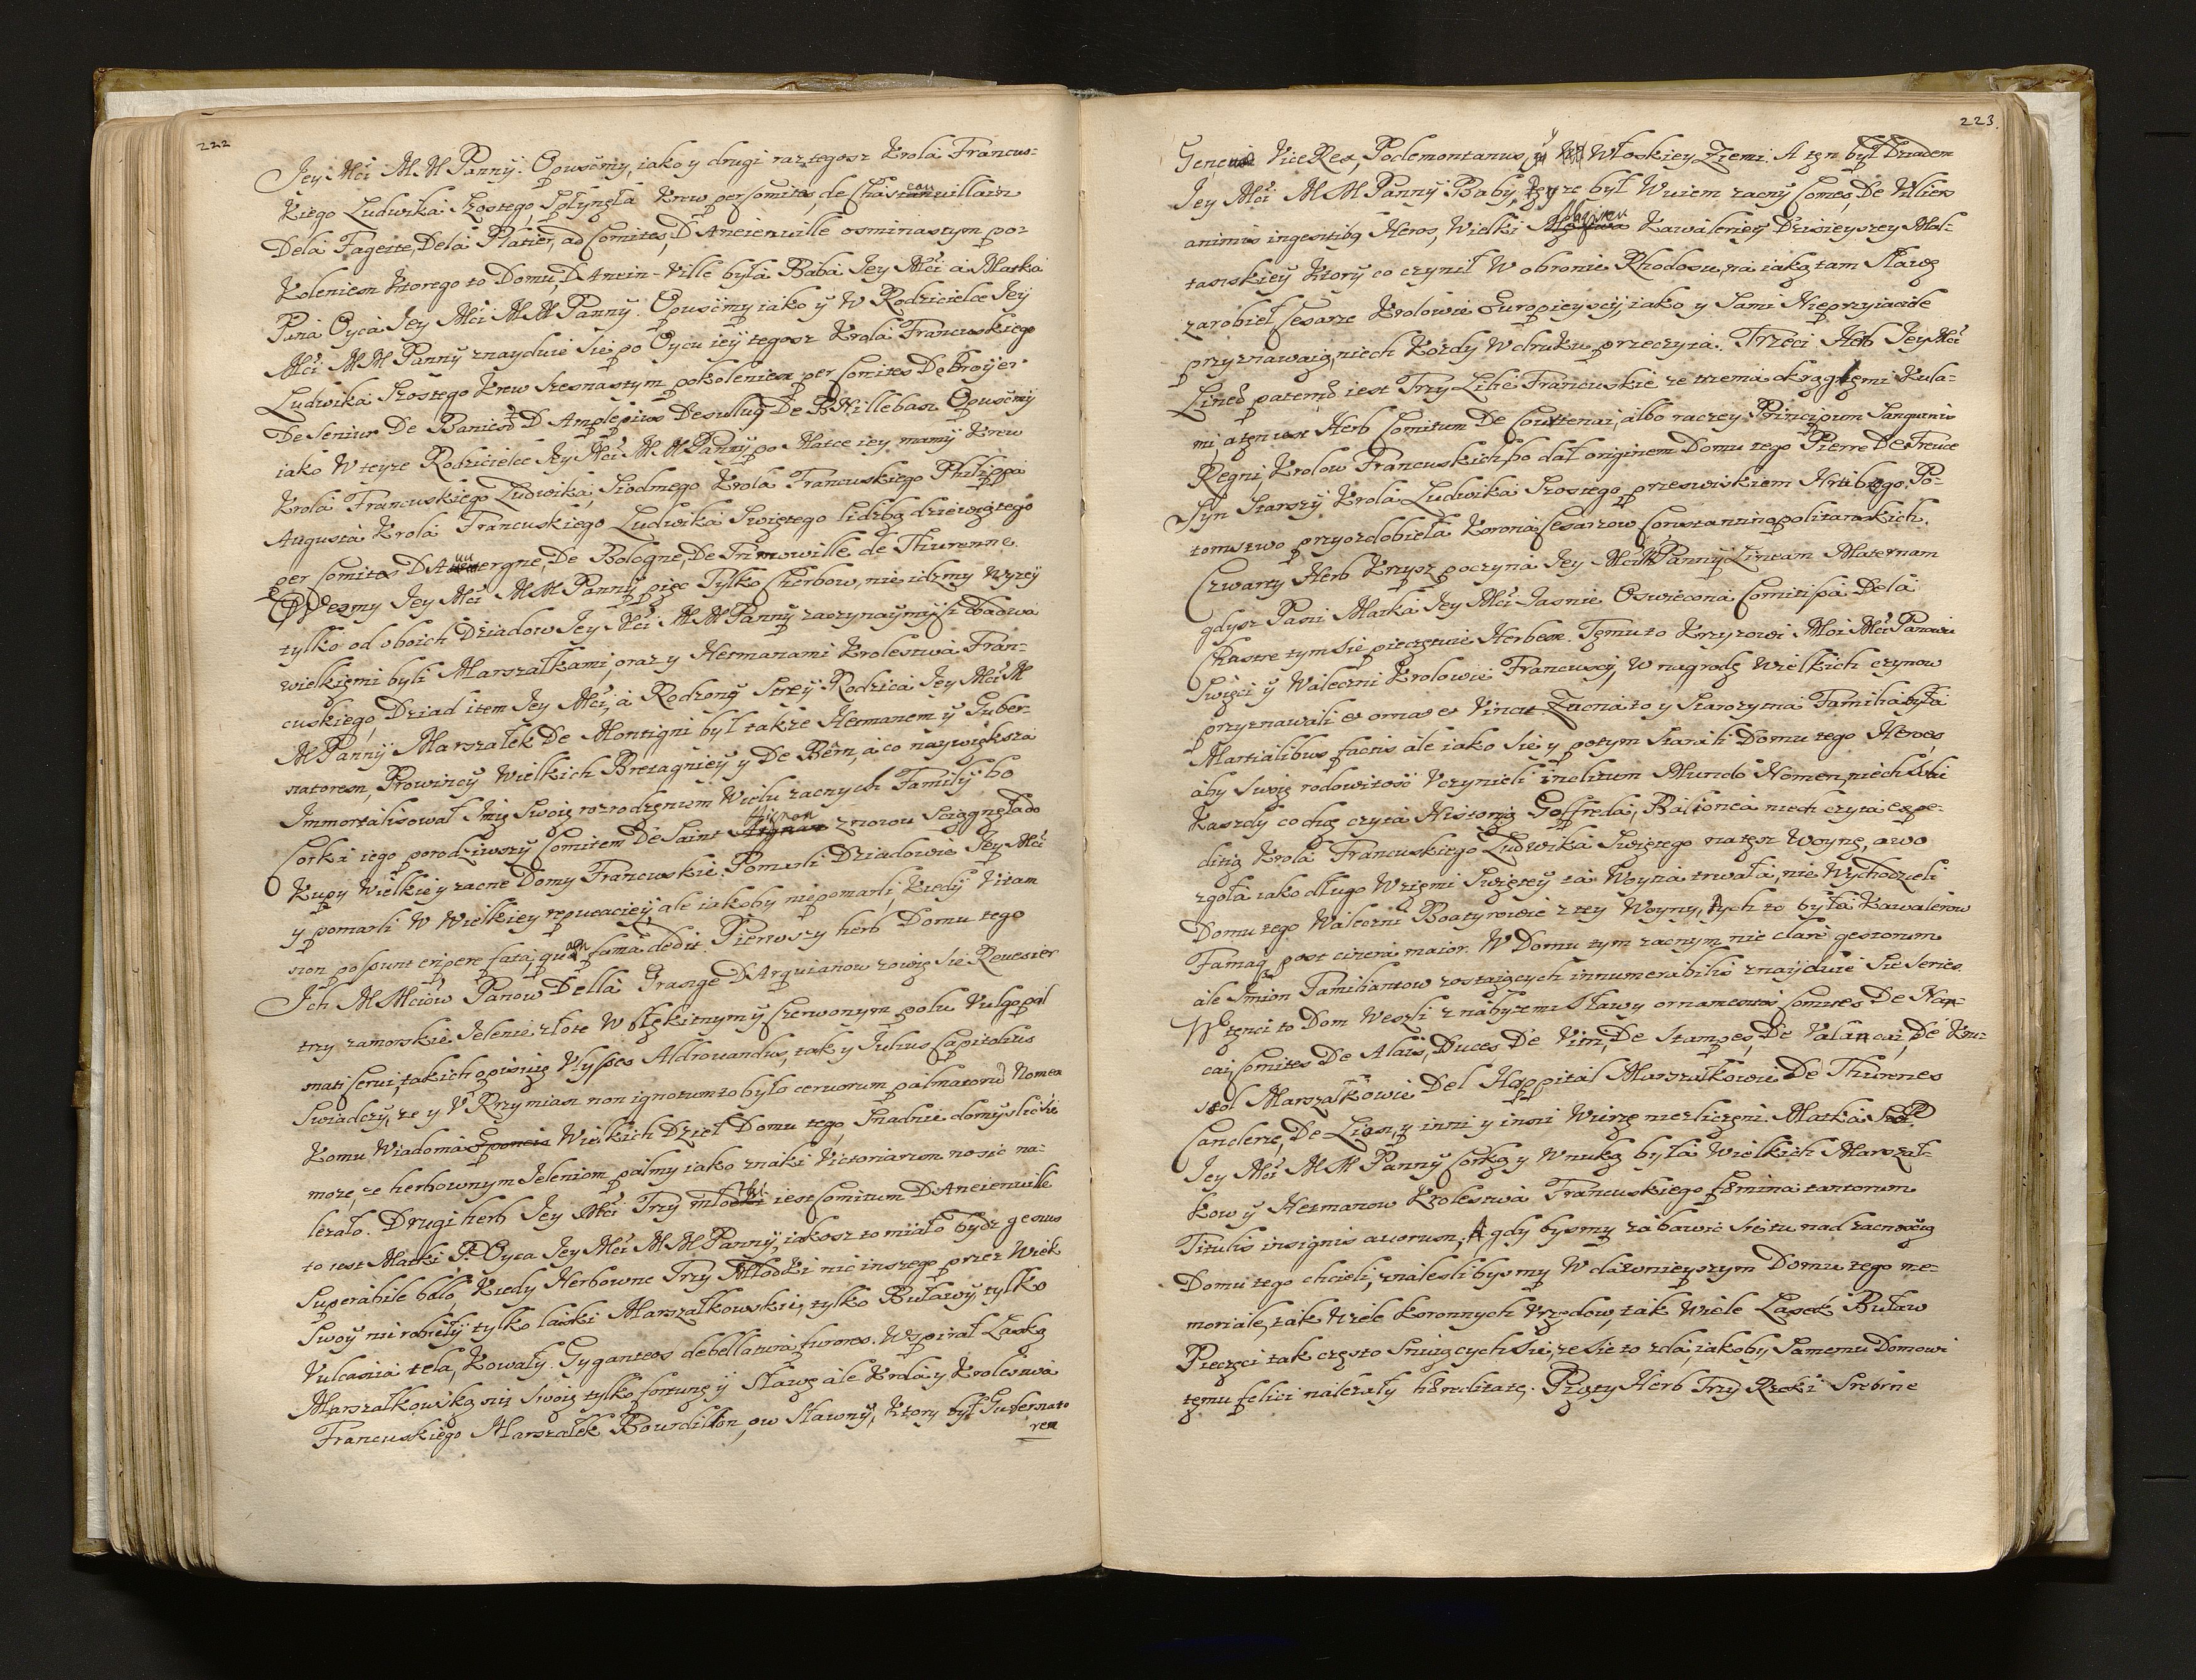 222
Jey Mći M M Panny. Opusćmy, iako y drugi raz tegosz Krola Francus-
kiego Ludwika Szostego, Spłynęła Krew per Comites, de Chasteauvillain
Dela Fagette, Dela Platier, ad Comites, D Ancienville osminastym po-
koleniem ktorego to Domu, D Ancin-Ville była Baba Jey Mći a Matka
Pana Oyca Jey Mći M M Panny. Opusćmy iako y w Rodzicielce Jey
Mći M M Panny znayduie się po Oycu iey tegosz Krola Francuskiego
Ludwika Szostego Krew Szesnastym pokoleniem per Comites De Broÿer
De Seniur De D Amplepius De B Villeban Opusćmy
iako w teyze Rodzicielce Jey Mći M M Panny po Matce iey mamy Krew
Krola Francuskiego Ludwika Siodmego Krola Francuskiego Philippa
Augusta Krola Francuskiego Ludwika Swiętego lidzbą dziewiątego
per Comites D Auuergne, De Bologne, De Trimowille de Thurenne.
Wezmy Jey Mći M M Panny pięc Tylko Cherbow, nie idzmy wyzey
tylko od oboich Dziadow Jey Mći M M Panny zaczynaymy, Ci obadwa
wielkięmi byli Marszałkami, oraz y Hetmanami Krolestwa Fran-
cuskiego, Dziad item Jey Mći, a Rodzony Stryy Rodzica Jey Mći M
M Panny Marszałek De Montigni był takze Hetmanem y Guber-
natorem, Prowincy Wielkich Bretagniey y De Bern, a co naywiększa
Immortalisował Imię Swoię rozrodzęnium Wielu zacnych Familÿ bo
Corka iego porodziwszy Comitem De Saint Aignon znowu Sciągnęła do
Kupy Wielkie y zacne Domy Francuskie. Pomarli Dziadowie Jey Mći
y pomarli w Wielkiey reputaciey ale iakoby niepomarli, kiedy Vitam
non possunt eripere fata, quam fama dedit. Pierwszy herb Domu tego
Ich M Mciow Panow Della Grange D Arquianow zowią się Reuesier
trzy zamorskie Ielenie złote w błękitnym y Czerwonym polu Vulgo pal
mati Cerui, takich opisuię Vlysses Aldrouandus, tak y Julius Capitolius
Swiadczy, ze y V Rzymian non ignotum to było ceruorum palmatorū Nomen
Komu Wiadoma Wielkich Dzieł Domu tego, Snadnie domyslic się
moze, ze herbownym Ieleniom palmy iako znaki Victoriarum nosic na-
lezało. Drugi herb Jey Mći Trzy młotki iest Comitum D Ancienuille
to iest Matki P. Oyca Jey Mći M M Panny, iakosz to miało bydz genus
Superabile bello, kiedy Herbowne Trzy Młodki nic inszego przez Wiek
Swoy nie robiełÿ tylko laski Marszałkowskie, tylko Buławÿ tylko
Vulcania tela, kowałÿ. Gyganteos debellatura furores. Wspierał Laską
Marszałkowską nie Swoię tylko fortunę ÿ Sławę ale Krola y Krolestwa
Francuskiego Marszałek Bourdillon, ow Sławny, ktory był Gubernato
rem
223.
Genuæ Vice Rex, Pedemontanus, y Włoskiey Ziemi. A ten był Dziadem
Jey Mći M M Panny Baby, teyze był Wuiem zacny Comes, De Villiers
animis ingentibq Heros, Wielki Kawaleriey Dzisieyszey Mal-
tanskiey Ktory co czynił w obronie Rhodosu, na iaką tam Sławę
zarobieł Cesarze Krolowie Europieyscy, iako y Sami Nieprzyiaciele
przyznawaią, niech kozdy w druku przeczyta. Trzeci Herb Jey Mći
Lineā paternā iest Trzy Lilie Francuskie ze trzema okrągłęmi Kula-
mi, a ten iest Herb Comitum De Courtenai, albo raczey Principum Sanguinis
Regni, Krolow Francuskich, bo dał originem Domu tego Pierre De France
Syn Starszy Krola Ludwika Szostego przezwiskiem Hrubego. Po-
tomstwo przyozdobieła Korona Cesarzow Constantinopolitanskich.
Czwarty Herb Krzysz poczyna Jey Mći M Panny Lineam Maternam
gdysz Pani Matka Jey Mći Jasnie Oswiecona Comitissa De la
Chastre tym się pieczętuie Herbem. Tęmu to Krzyzowi Moi Mći Panowie
Swięci y Waleczni Krolowie Francuscy, w nagrodę Wielkich czynow
przyznawali Zacna to y Starozytna Familia była
Martialibus factis ale iako się y potym Starali Domu tego Heroes,
aby Swoię rodowitosc vczynieli inclitum Mundo Nomen, niech Sobi
kaszdy co chcę czyta Historią Goffreda, Baliona niech czyta expe-
ditią Krola Francuskiego Ludwika Swiętego na tęsz Woynę, awo
zgoła iako długo w ziemi Swiętey ta Woyna trwała, nie Wychodzieli
Domu tego Waleczni Boatyrowie z tey Woyny, tych to była Kawalerow
Famaq post cinera maior. W Domu tym zacnym nie clarè gestorum
ale Imion Familiantow zostaiących innumerabilis znayduie Się Series
W tenci to Dom Weszli z nabyzemi Sławy ornamentis Comites De Nan-
cai, Comites De Alais, Duces De Vitri, De Stampes, De Valancai, De Kru-
sol Marszałkowie Del Hoppital Marszałkowie De Thurenes
Canderie, De Lion, y inni y insni Wierzę niezliczęni. Matka
Jey Mći M M Panny Corką y Wnuką była Wielkich Marszał-
kow y Hetmanow Krolestwa Francuskiego fæmina tantorum
Titulis insignis auorum; A gdy bysmy zabawic Się tu nad zacnoscią
Domu tego chcieli, znalezli bysmy w dawnieyszym Domu tego me-
moriale, tak Wiele koronnych Vrzędow, tak Wiele Lasek Buław
Pieczęci tak często Sniuiących się, ze się to zda, iakoby Samemu Domowi
tęmu felici nalezały hæreditate. Piąty Herb Trzy Rzeki Srebrne